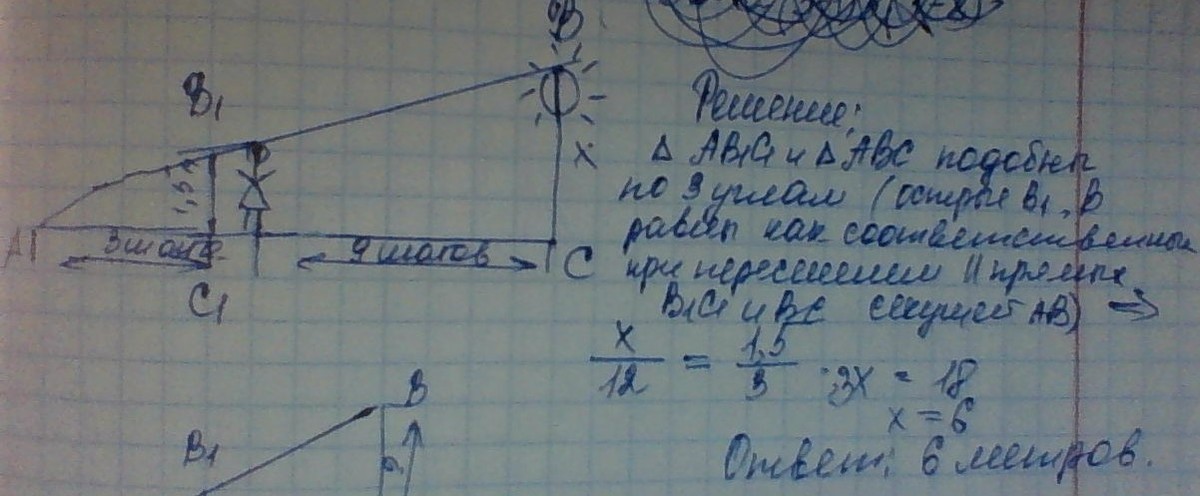 B
B₁
1,5
x
A
3 шага
9 шагов
C
C₁
Решение:
△ AB₁C₁ и △ ABC подобны
по 3 углам (острые B₁, B
равны как соответственные
при пересечении || прямых
B₁C₁ и BC секущей AB) ⇒
x/12 = 1,5/3 3x = 18
x = 6
Ответ: 6 метров.
B
B₁